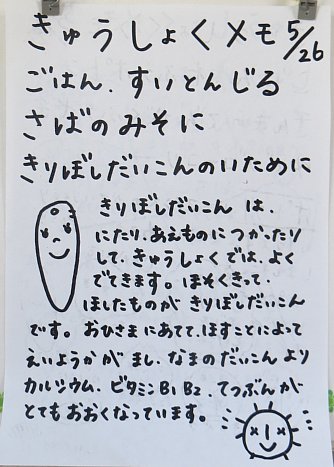 きゅうしょくメモ 5/26
ごはん、すいとんじる
さばのみそに
きりぼしだいこんのいために
きりぼしだいこん は、
にたり、あえものに つかったり
して、きゅうしょく では、よく
でてきます。ほそくきって、
ほしたものが きりぼしだいこん
です。おひさま にあてて、ほすことによって
えいようかが まし、なまの だいこん より
カルシウム、ビタミンB1 B2、てつぶんが
とても おおくなっています。